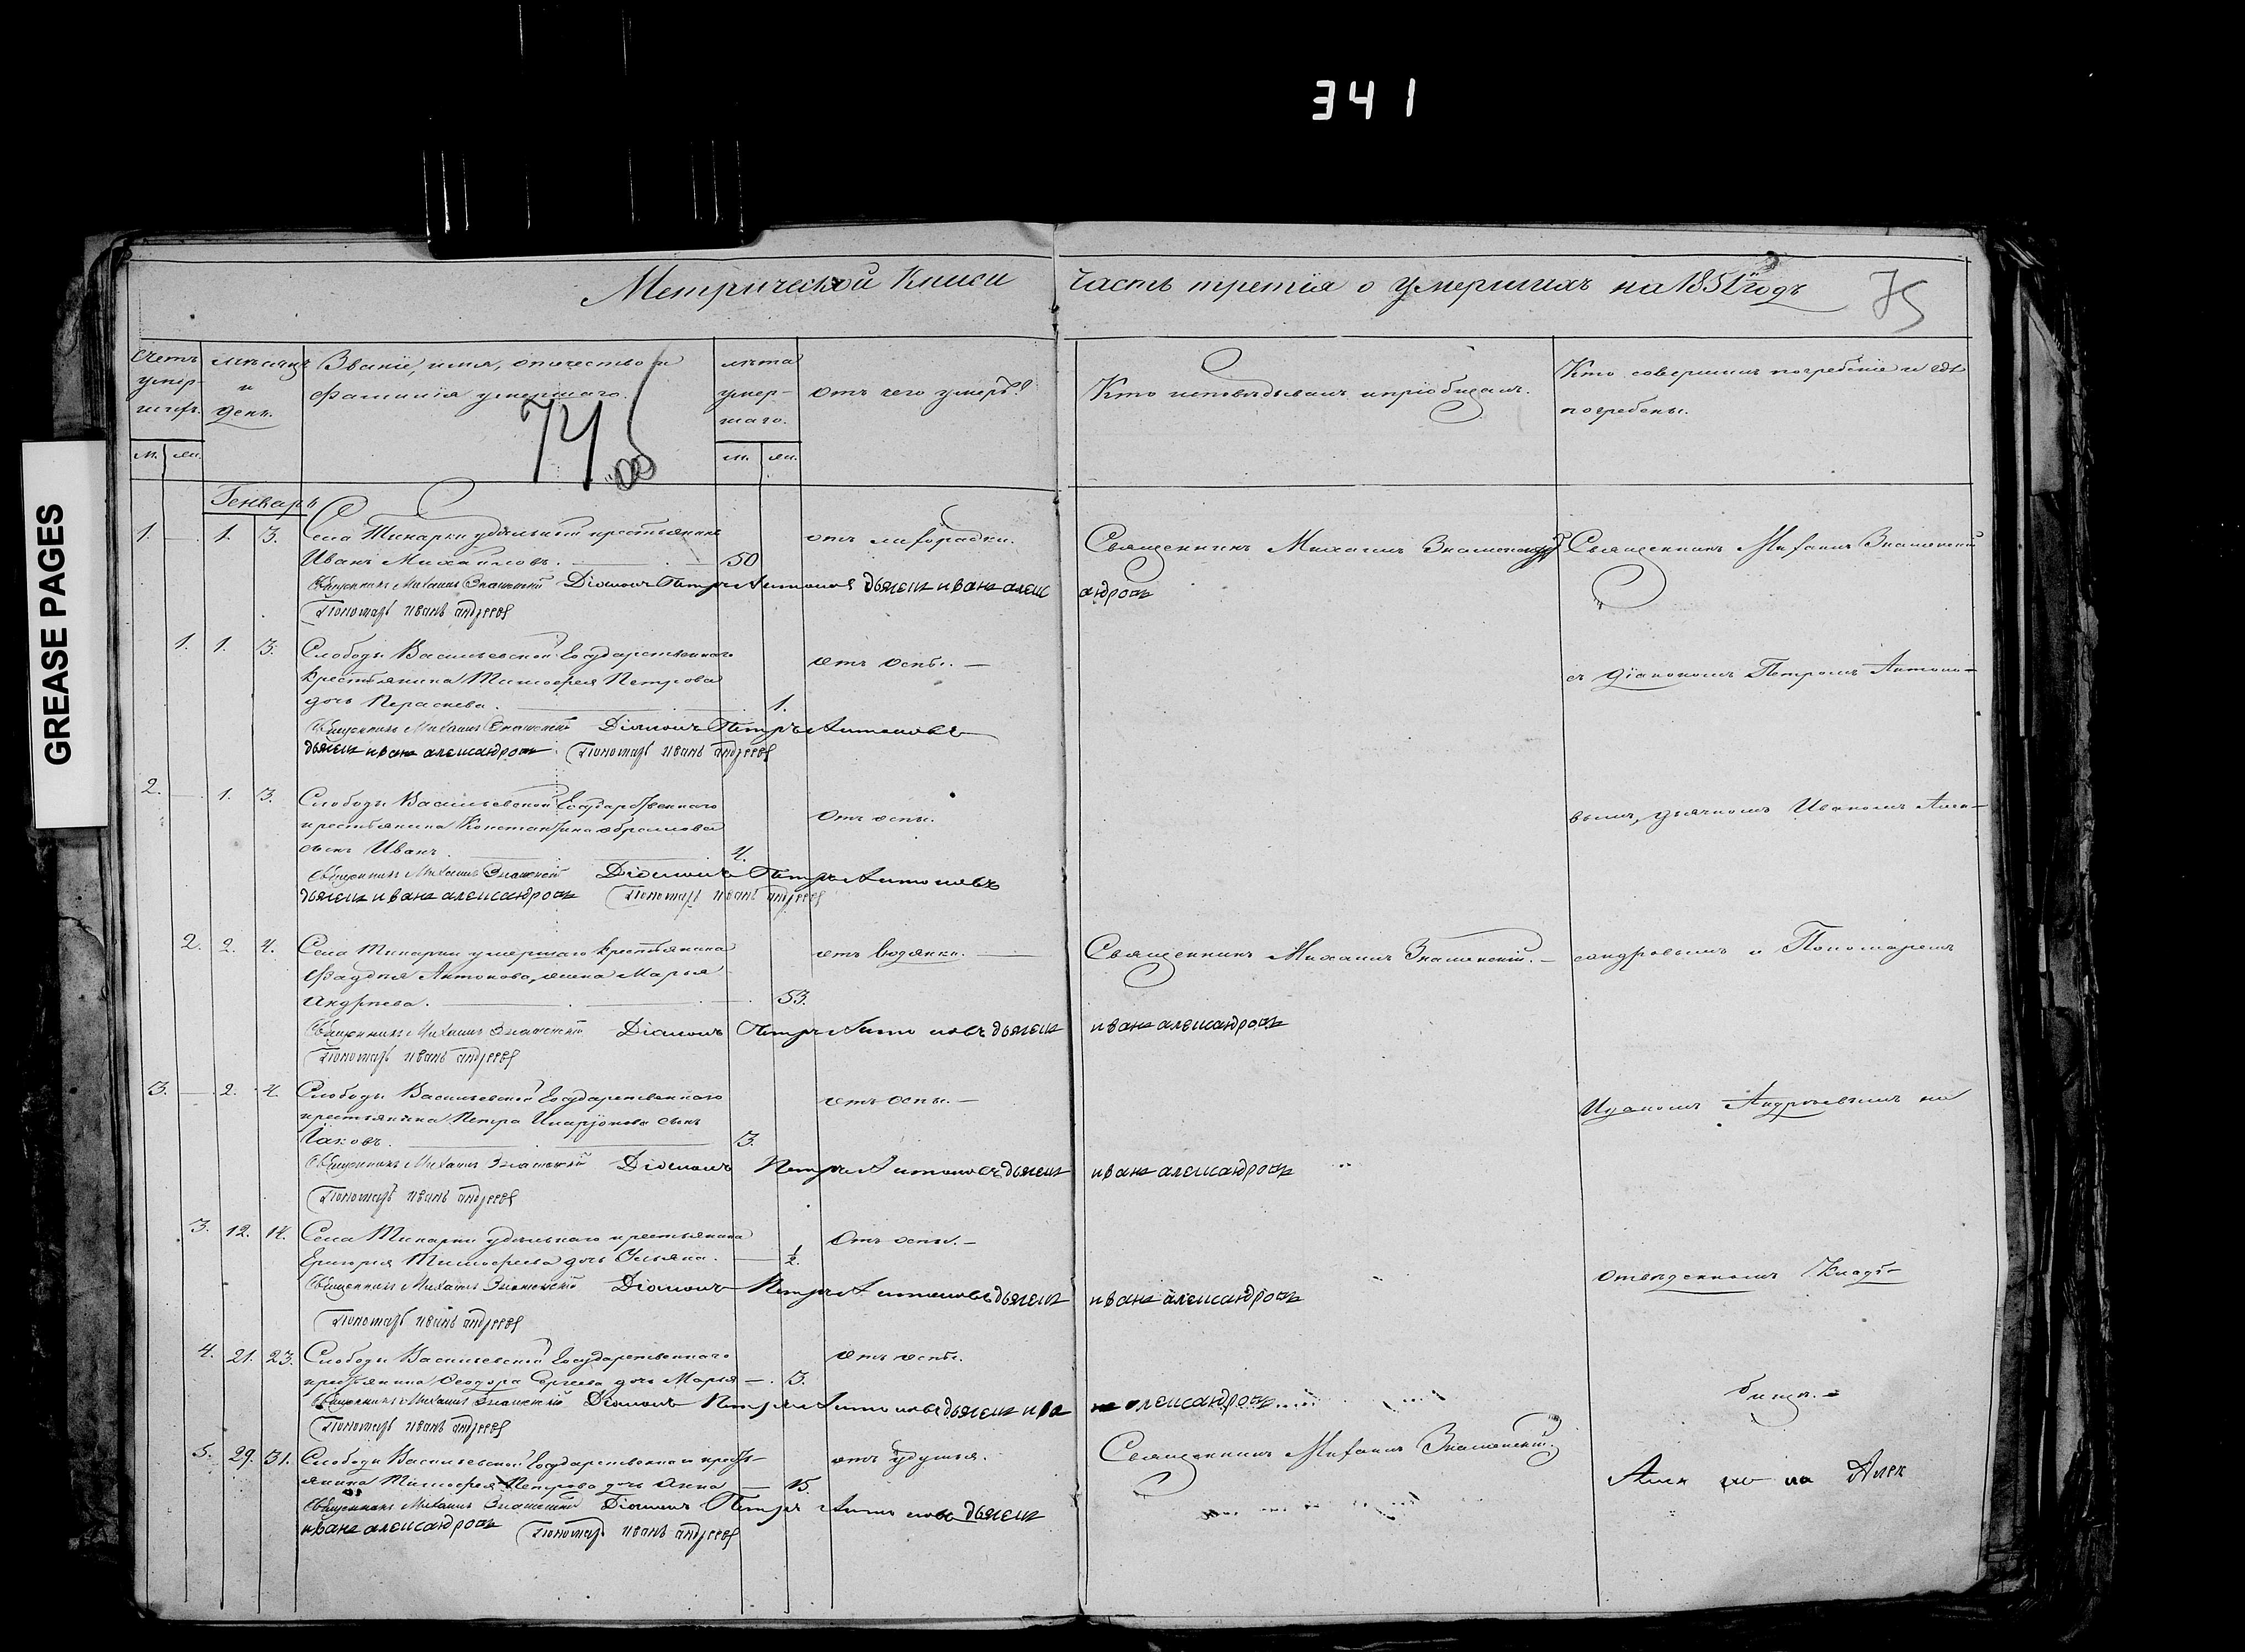 341
GREASE PAGES
Метрической Книги часть третія о умершихъ на 1851й годъ
75
74 об
Счетъ умер-шихъ.
мѣсяцъ и день.
Званіе, имя, отечество и фамилія умершаго.
лѣта умер-шаго.
отъ чего умеръ?
Кто исповѣдывалъ и пріобщалъ.
Кто совершилъ погребеніе и гдѣ погребены.
м. жен. м. жен.
Генварь
1. — 1. 3. Села Тинарки удѣльный крестьянинъ
Иванъ Михайловъ. 50 отъ лихорадки.
Священникъ Михаилъ Знаменскій
Священникъ Михаилъ Знаменскій
Священникъ Михаилъ Знаменскій Діаконъ Петръ Антоновъ дьячекъ иванъ алекс андровъ
Пономарь иванъ андреев
1. 1. 3. Слободы Васильевской Государственнаго
крестьянина Тимофея Петрова
дочь Параскева. 1. отъ оспы. —
съ Діакономъ Петромъ Антоно-
Священникъ Михаилъ Знаменскій Діаконъ Петръ Антоновъ
дьячекъ иванъ александровъ Пономарь иванъ андреев
2. — 1. 3. Слободы Васильевской Государственнаго
крестьянина Константина Абрамова
сынъ Иванъ. 4. Отъ оспы.
вымъ, дьячкомъ Иваномъ Алек-
Священникъ Михаилъ Знаменскій Діаконъ Петръ Антоновъ
дьячекъ иванъ александровъ Пономарь иванъ андреев
2. 2. 4. Села Тинарки умершаго крестьянина
Антонова, жена Марья
Андреева. 53. отъ водянки. —
Священникъ Михаилъ Знаменскій. —
сандровымъ и Пономаремъ
Священникъ Михаилъ Знаменскій Діаконъ Петръ Антоновъ дьячекъ иванъ александровъ
Пономарь иванъ андреев
3. — 2. 4. Слободы Васильевской Государственнаго
крестьянина Петра Иларіонова сынъ
Іаковъ. 3. отъ оспы. —
Иваномъ Андреевымъ на
Священникъ Михаилъ Знаменскій Діаконъ Петръ Антоновъ дьячекъ иванъ александровъ
Пономарь иванъ андреев
3. 12. 14. Села Тинарки удѣльнаго крестьянина
Григорія Тимофеева дочь Ульяна. 1/2. Отъ оспы. —
отведенномъ Кладъ-
Священникъ Михаилъ Знаменскій Діаконъ Петръ Антоновъ дьячекъ иванъ александровъ
Пономарь иванъ андреев
4. 21. 23. Слободы Васильевской Государственнаго
крестьянина Феодора Сергеева дочь Марья — 3. отъ оспы.
бищѣ. —
Священникъ Михаилъ Знаменскій Діаконъ Петръ Антоновъ дьячекъ ива нъ александровъ
Пономарь иванъ андреев
5. 29. 31. Слободы Васильевской Государственнаго кресть-
янина Тимофея Петрова дочь Анна — 15. отъ удушья.
Священникъ Михаилъ Знаменскій.
Священникъ Михаилъ Знаменскій Діаконъ Петръ Антоновъ дьячекъ
иванъ александровъ Пономарь иванъ андреев